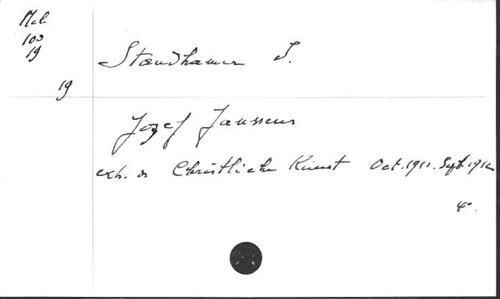 Mel.
103
19
Standhamer S.
19
Jozef Janssens
ext. Christliche Kunst Oct. 1911. Sept. 1912
4°.